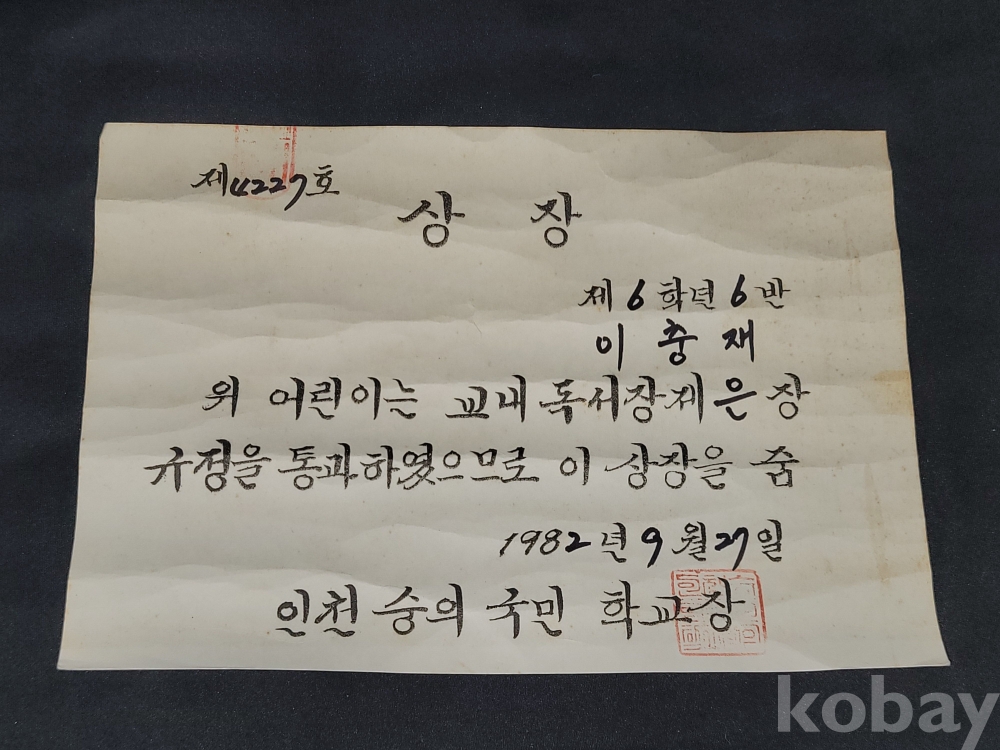 제4227호
상 장
제 6 학년 6 반
이 충 재
위 어린이는 교내 독서장제 은 장
규정을 통과하였으므로 이 상장을 줌
1982 년 9 월 27 일
인천 숭의 국민 학교장
kobay